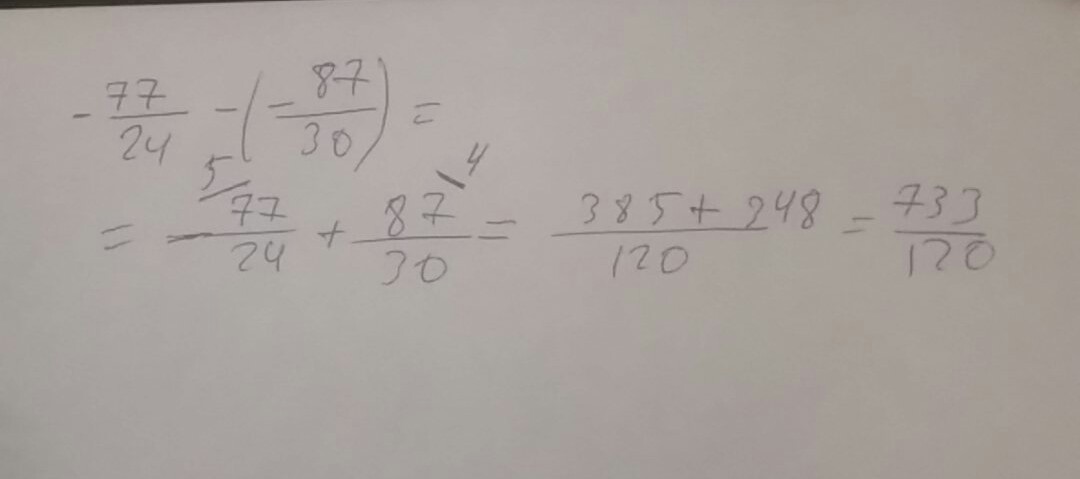 - 77/24 - (- 87/30) =
= - 77/24 5 + 87/30 4 = 385 + 348/120 = 733/120